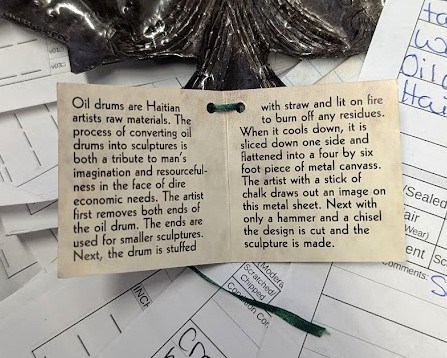 Oil drums are Haitian
artists raw materials. The
process of converting oil
drums into sculptures is
both a tribute to man's
imagination and resourceful-
ness in the face of dire
economic needs. The artist
first removes both ends of
the oil drum. The ends are
used for smaller sculptures.
Next, the drum is stuffed
with straw and lit on fire
to burn off any residues.
When it cools down, it is
sliced down one side and
flattened into a four by six
foot piece of metal canvass.
The artist with a stick of
chalk draws out an image on
this metal sheet. Next with
only a hammer and a chisel
the design is cut and the
sculpture is made.
Oil
/Sealed
air
Wear)
Scent
Comments:
Modera
Scratched/
Chipped
Common Cor.
INCH